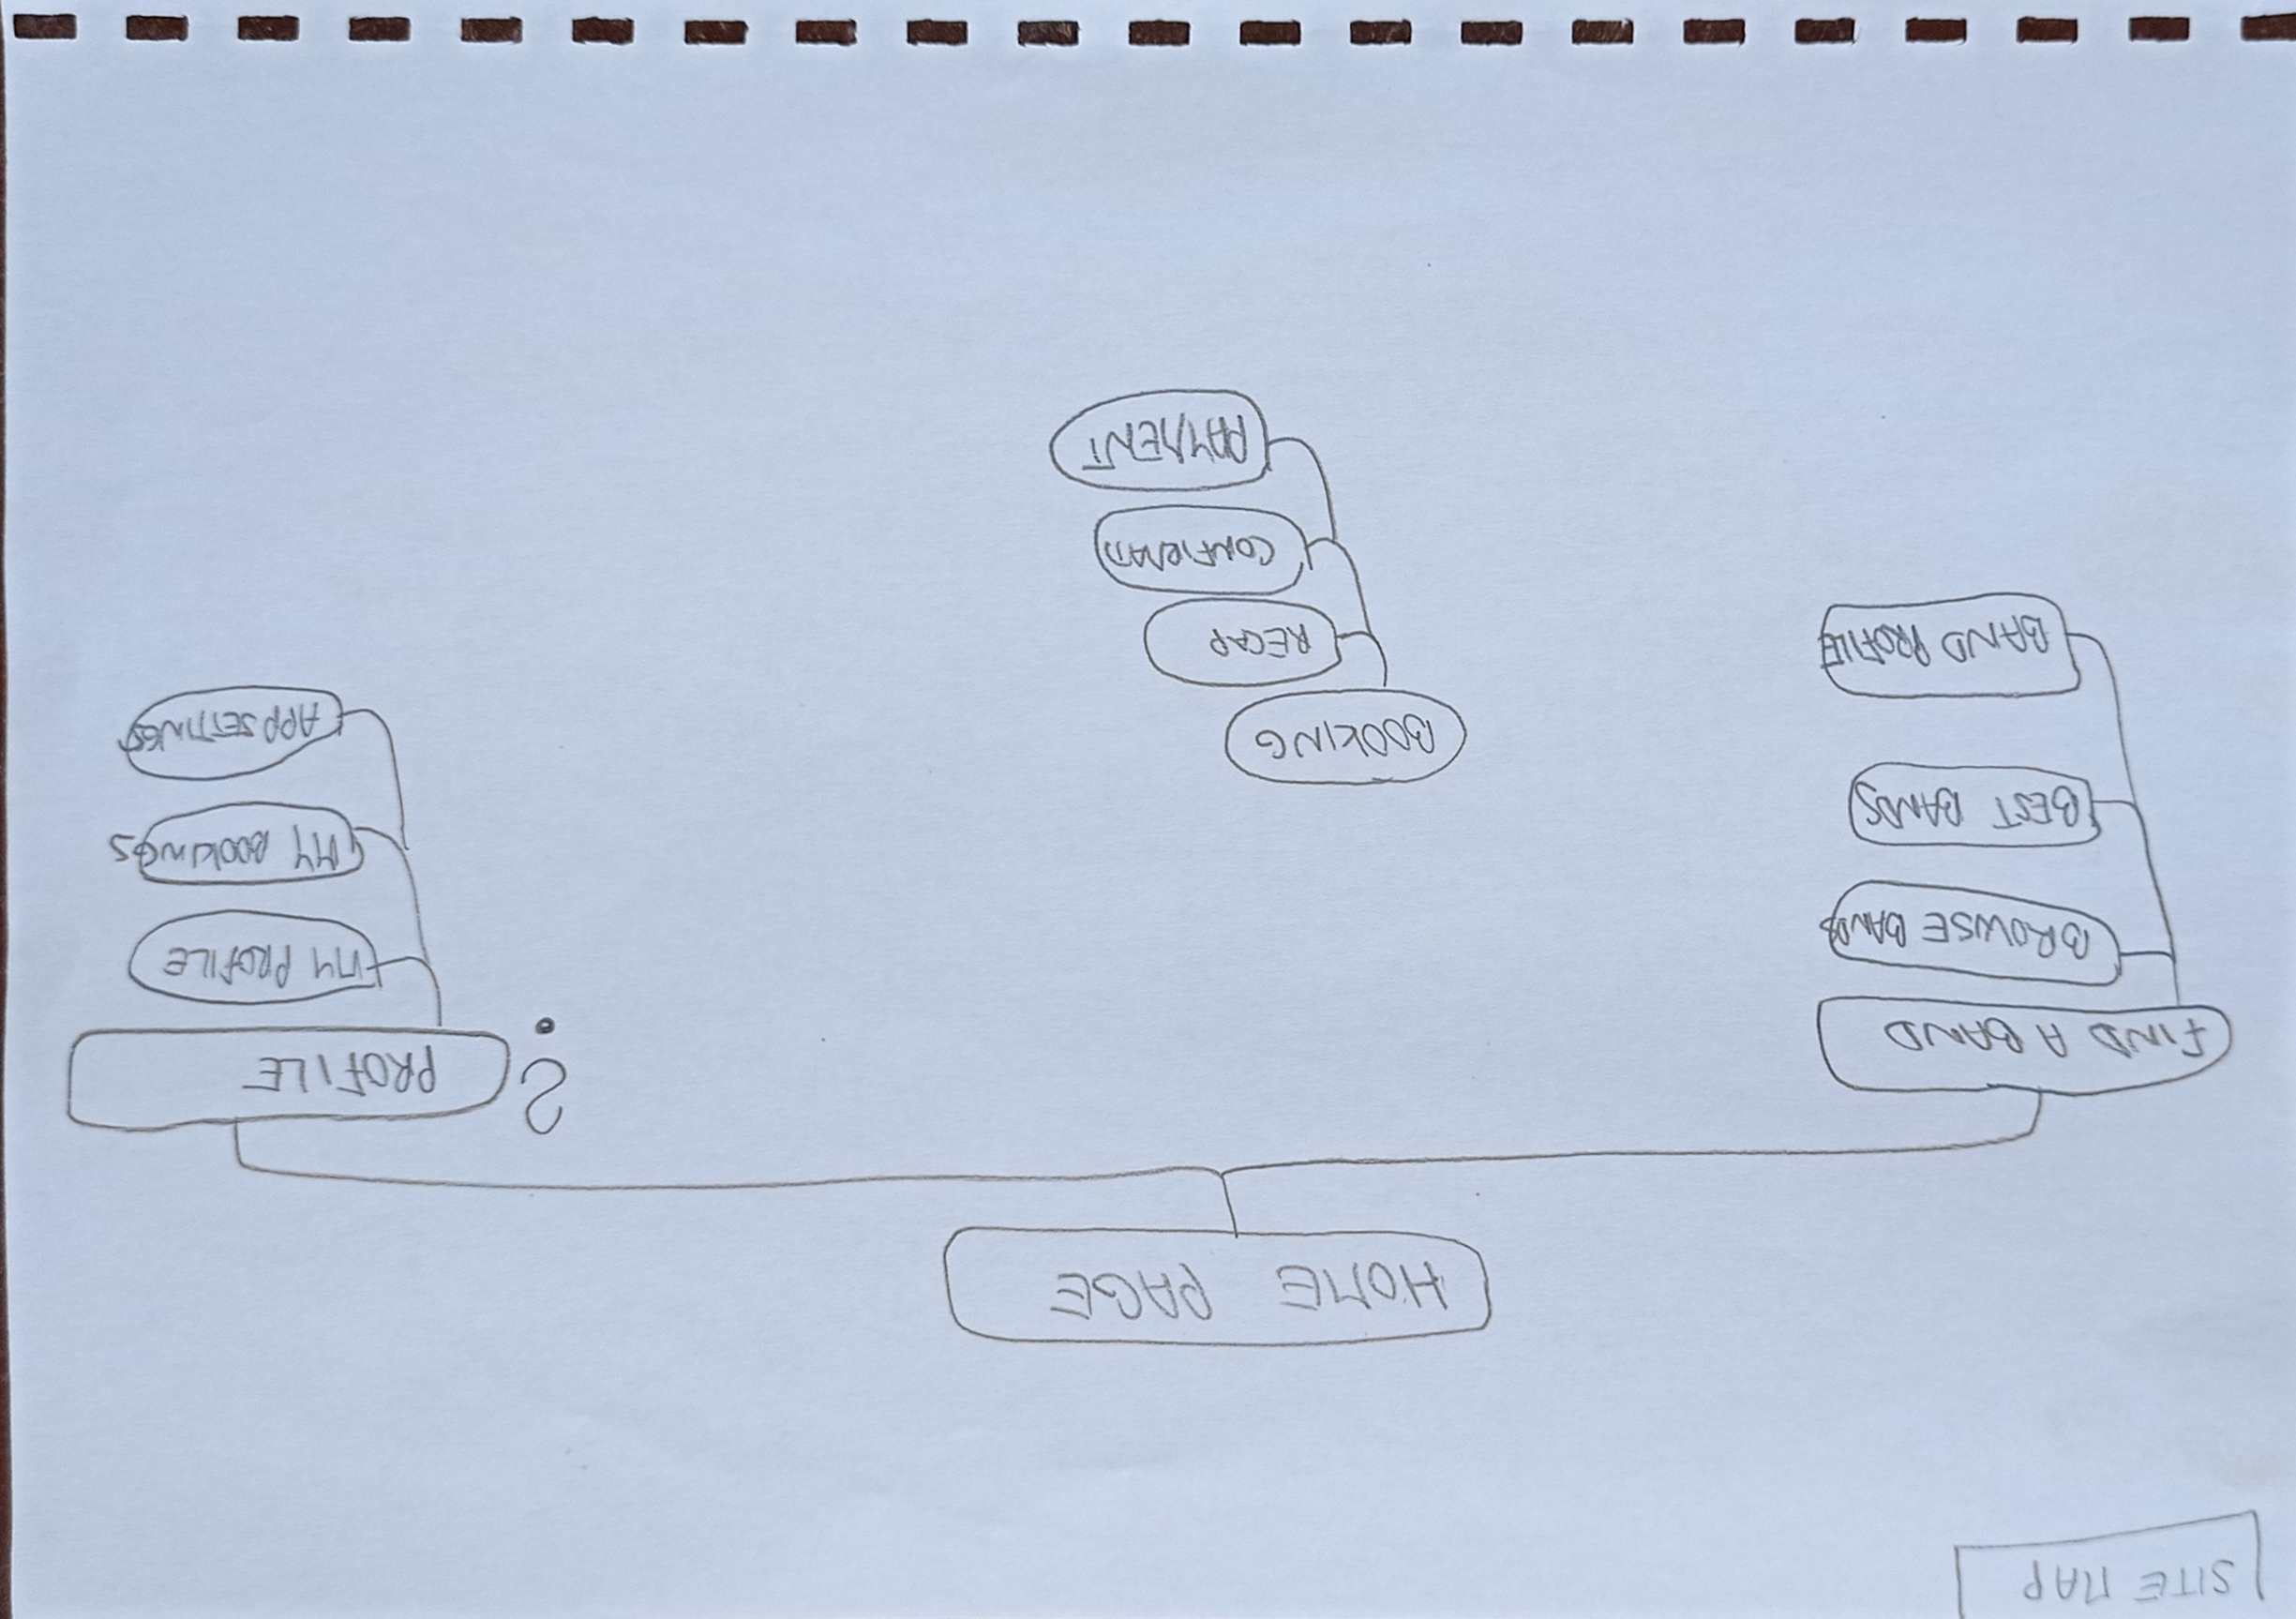 SITE MAP
HOME PAGE
FIND A BAND
BROWSE BANDS
BEST BANDS
BAND PROFILE
BOOKING
RECAP
PAYMENT
?
PROFILE
MY PROFILE
MY BOOKINGS
APP SETTINGS